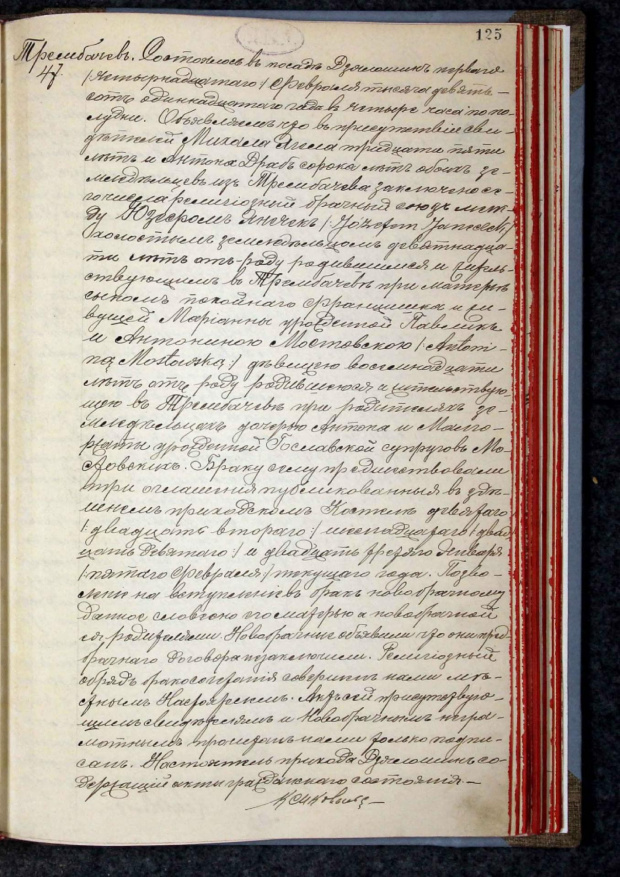 125
Трембачевъ. Состоялось въ посадѣ Дзялошинѣ перваго
47. /:четырнадцатаго:/ Февраля тысяча девять-
сотъ одиннадцатаго года въ четыре часа по по-
лудни. Объявляемъ что въ присутствіи сви-
дѣтелей Михала тридцати пяти
лѣтъ и Антона Драбъ сорока лѣтъ обоихъ зе-
мледѣльцевъ изъ Трембачева заключенъ се-
го числа религіозный брачный союзъ меж-
ду Юзефомъ Янечек /:Józefem Janeczek:/
холостымъ земледѣльцомъ девятнадца-
ти лѣтъ отъ роду родившимся и житель-
ствующимъ въ Трембачевѣ при матери
сыномъ покойнаго Францишка и жи-
вущей Маріанны урожденной Павликъ
и Антониною Мостовскою /:Antoni-
ną Mostowską:/ дѣвицею восемнадцати
лѣтъ отъ роду родившеюся и жительствую-
щею въ Трембачевѣ при родителяхъ зе-
мледѣльцахъ дочерью Антона и Малго-
ржаты урожденной Гославской супруговъ Мо-
стовскихъ. Браку сему предшествовали
три оглашенія публикованныя въ здѣ-
шнемъ приходскомъ Костелѣ девятаго
/:двадцать втораго:/ шестнадцатаго /:двад-
цать девятаго:/ и двадцать третьяго Января
/:пятаго Февраля:/ текущаго года. Позво-
леніе на вступленіе въ бракъ новобрачному
данное словесно его матерью а новобрачной
ея родителями. Новобрачные объявили что они пред-
брачнаго договора не заключили. Религіозный
обрядъ бракосочетанія совершенъ нами мѣ-
стнымъ Настоятелемъ. Актъ сей присутствую-
щимъ свидѣтелямъ и Новобрачнымъ негра-
мотнымъ прочитанъ нами только подпи-
санъ. Настоятель прихода Дзялошинъ со-
держащій акты гражданскаго состоянія